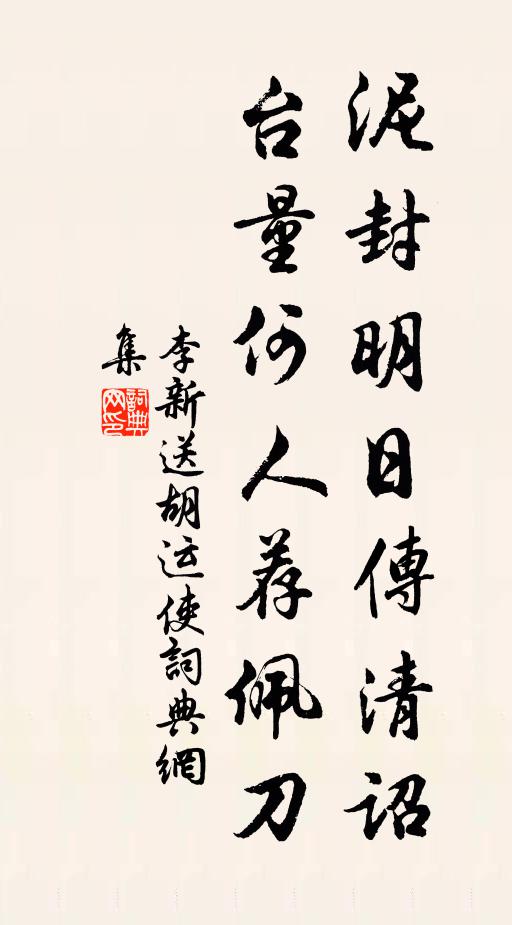 泥封明日傳清詔
台量何人荐佩刀
李新送胡运使詞典網
集
詞典网印